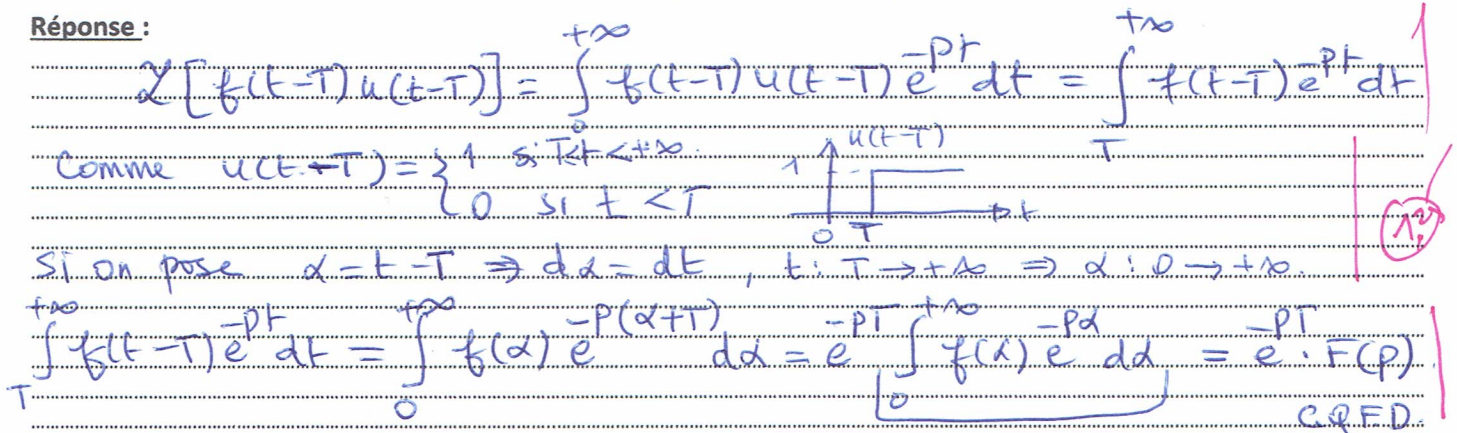 Réponse :
ℒ[f(t-T)u(t-T)] = ∫₀^{+∞} f(t-T)u(t-T) e^{-pt} dt = ∫_T^{+∞} f(t-T) e^{-pt} dt
Comme u(t-T) = { 1 si T<t<+∞. u(t-T) 1
0 si t < T 0 T t
Si on pose α = t-T ⇒ dα = dt , t : T → +∞ ⇒ α : 0 → +∞.
∫_T^{+∞} f(t-T) e^{-pt} dt = ∫₀^{+∞} f(α) e^{-p(α+T)} dα = e^{-pT} ∫₀^{+∞} f(α) e^{-pα} dα = e^{-pT} . F(p)
C.Q.F.D.